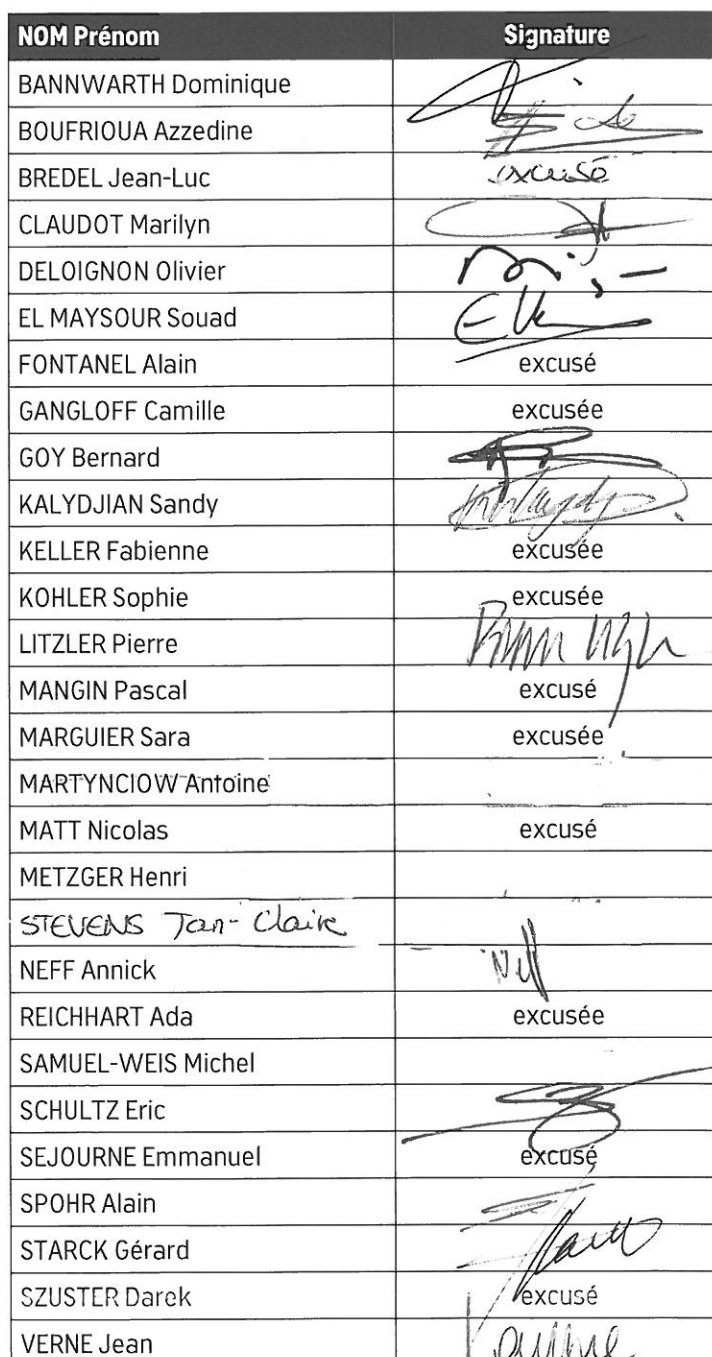 NOM Prénom Signature
BANNWARTH Dominique
BOUFRIOUA Azzedine
BREDEL Jean-Luc excusé
CLAUDOT Marilyn
DELOIGNON Olivier
EL MAYSOUR Souad
FONTANEL Alain excusé
GANGLOFF Camille excusée
GOY Bernard
KALYDJIAN Sandy
KELLER Fabienne excusée
KOHLER Sophie excusée
LITZLER Pierre
MANGIN Pascal excusé
MARGUIER Sara excusée
MARTYNCIOW Antoine
MATT Nicolas excusé
METZGER Henri
STEVENS Jan-Claire
NEFF Annick
REICHHART Ada excusée
SAMUEL-WEIS Michel
SCHULTZ Eric
SEJOURNE Emmanuel excusé
SPOHR Alain
STARCK Gérard
SZUSTER Darek excusé
VERNE Jean